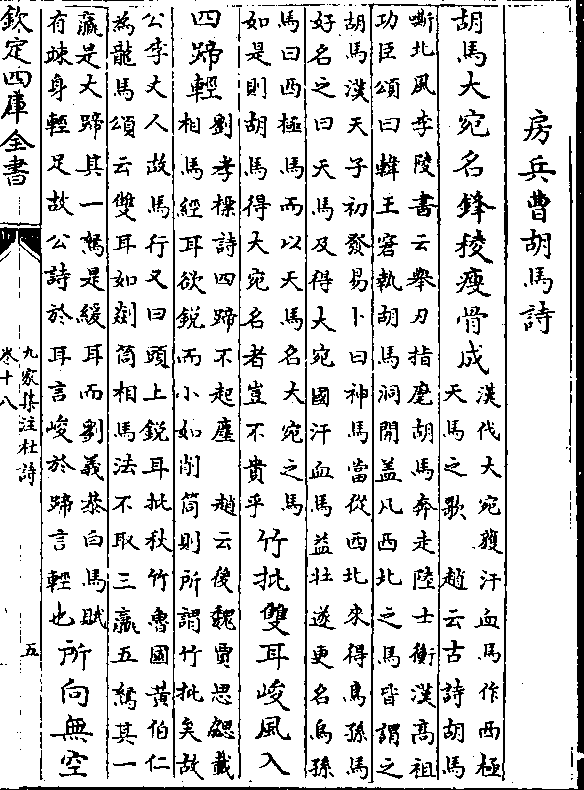 房兵曹胡馬詩
胡馬大宛名鋒稜瘦骨成
漢代大宛獲汗血馬作西極
天馬之歌 趙云古詩胡馬
嘶北風李陵書云舉刃指麾胡馬奔走陸士衡漢高祖
功臣頌曰韓王窘執胡馬洞開蓋凡西北之馬皆謂之
胡馬漢天子初發易卜曰神馬當從西北來得烏孫馬
好名之曰天馬及得大宛國汗血馬益壯遂更名烏孫
馬曰西極馬而以天馬名大宛之馬
如是則胡馬得大宛名者豈不貴乎
竹批雙耳峻風入
四蹄輕
劉孝標詩四蹄不起塵 趙云後魏賈思勰載
相馬經耳欲銳而小如削筒則所謂竹批矣故
公李丈人故馬行又曰頭上銳耳批秋竹魯國黃伯仁
為龍馬頌云雙耳如剡筒相馬法不取三羸五駑其一
羸是大蹄其一駑是緩耳而劉義恭白馬賦
有竦身輕足故公詩於耳言峻於蹄言輕也
所向無空
欽定四庫全書
九家集注杜詩
卷十八
五